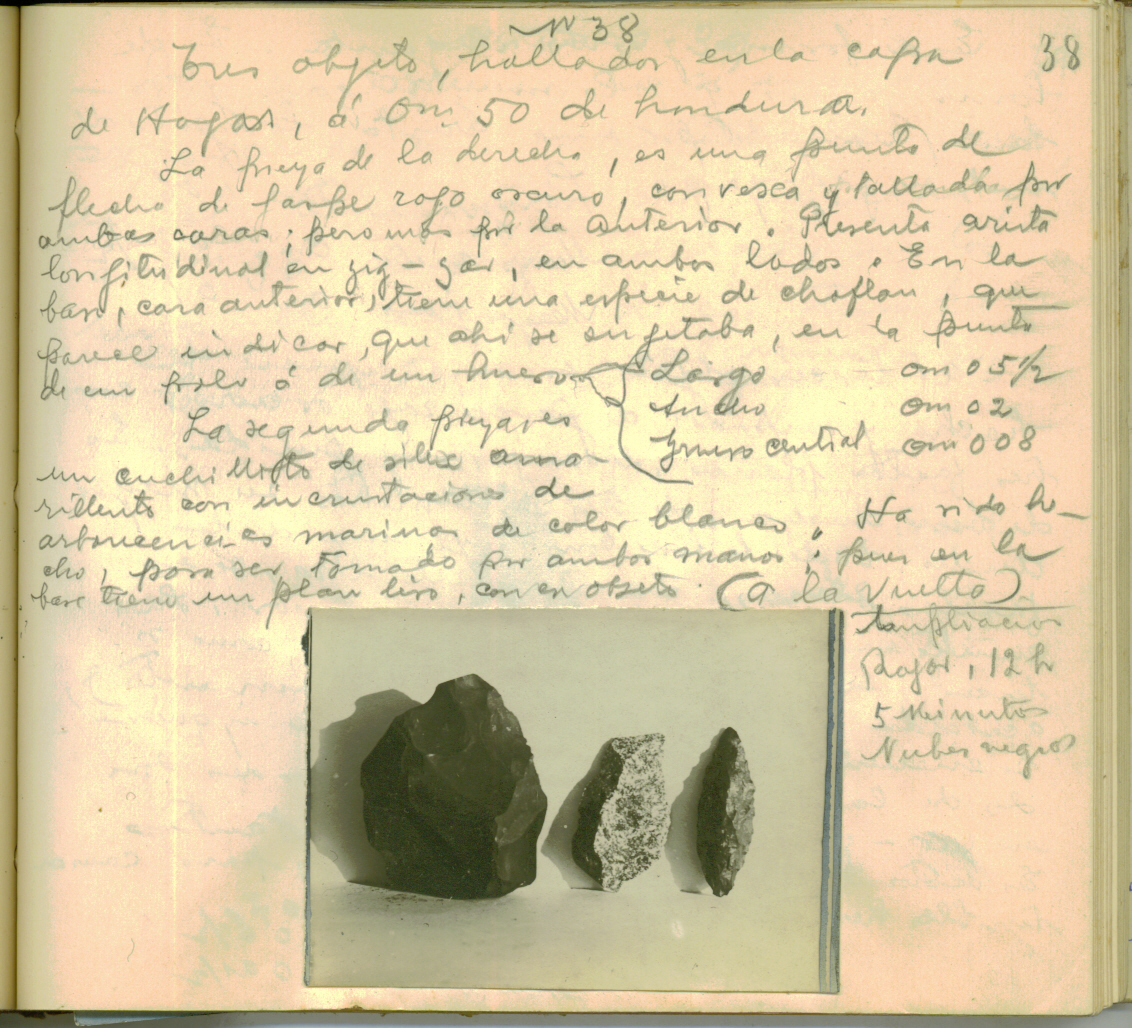 Nº 38
38
Tres objeto, hallados en la capa
de Hogar, á 0m 50 de hondura.
La pieza de la derecha, es una punta de
flecha de jaspe rojo oscuro, convexa y tallada por
ambas caras; pero mas por la anterior. Presenta arista
longitudinal en zig-zag, en ambos lados. En la
base, cara anterior, tiene una especie de chaflan, que
parece indicar, que ahi se sujetaba, en la punta
de un palo ó de un hueso
Largo 0m 05 1/2
Ancho 0m 02
Grueso central 0m 008
La segunda pieza es
un cuchillito de silex ama-
rillento con incrustaciones de
arborecencias marinas de color blanco. Ha sido he-
cho, para ser Tomado por ambas manos; pues en la
base tiene un plan liso, con ese objeto. (a la vuelta)
Ampliacion
Rojas, 12 h
5 Minutos
Nubes negras